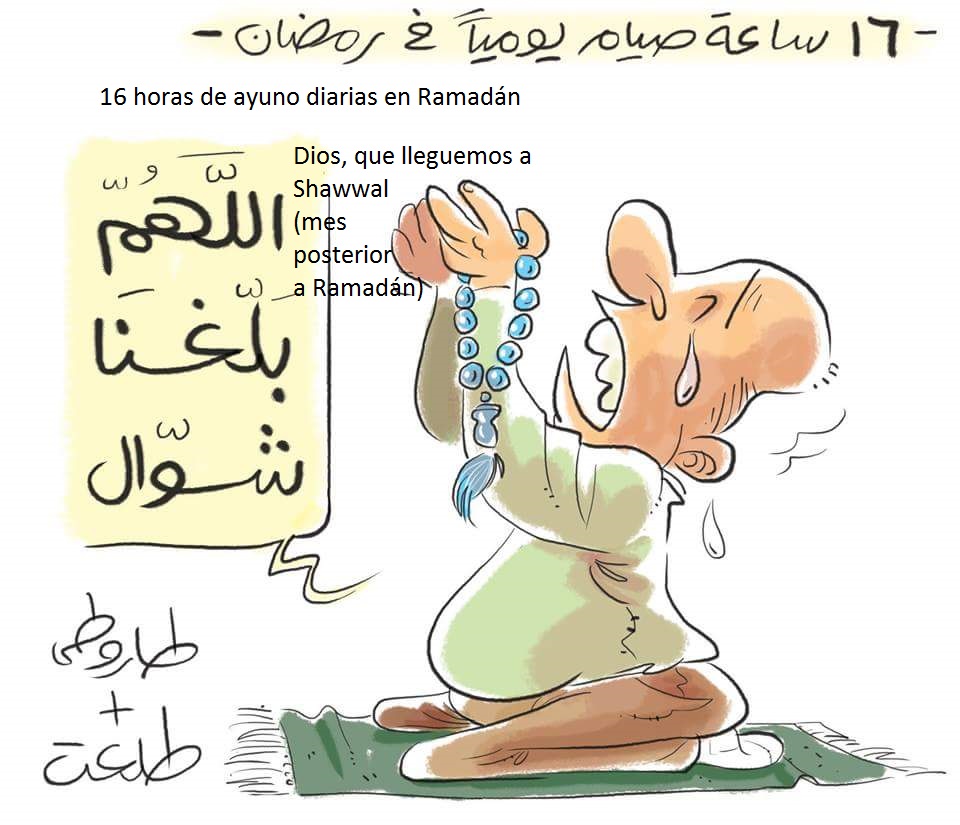 - ١٦ ساعة صيام يومياً في رمضان -
16 horas de ayuno diarias en Ramadán
Dios, que lleguemos a
Shawwal
(mes
posterior
a Ramadán)
اللّهُمّ
بلّغنَا
شوّال
طلعت